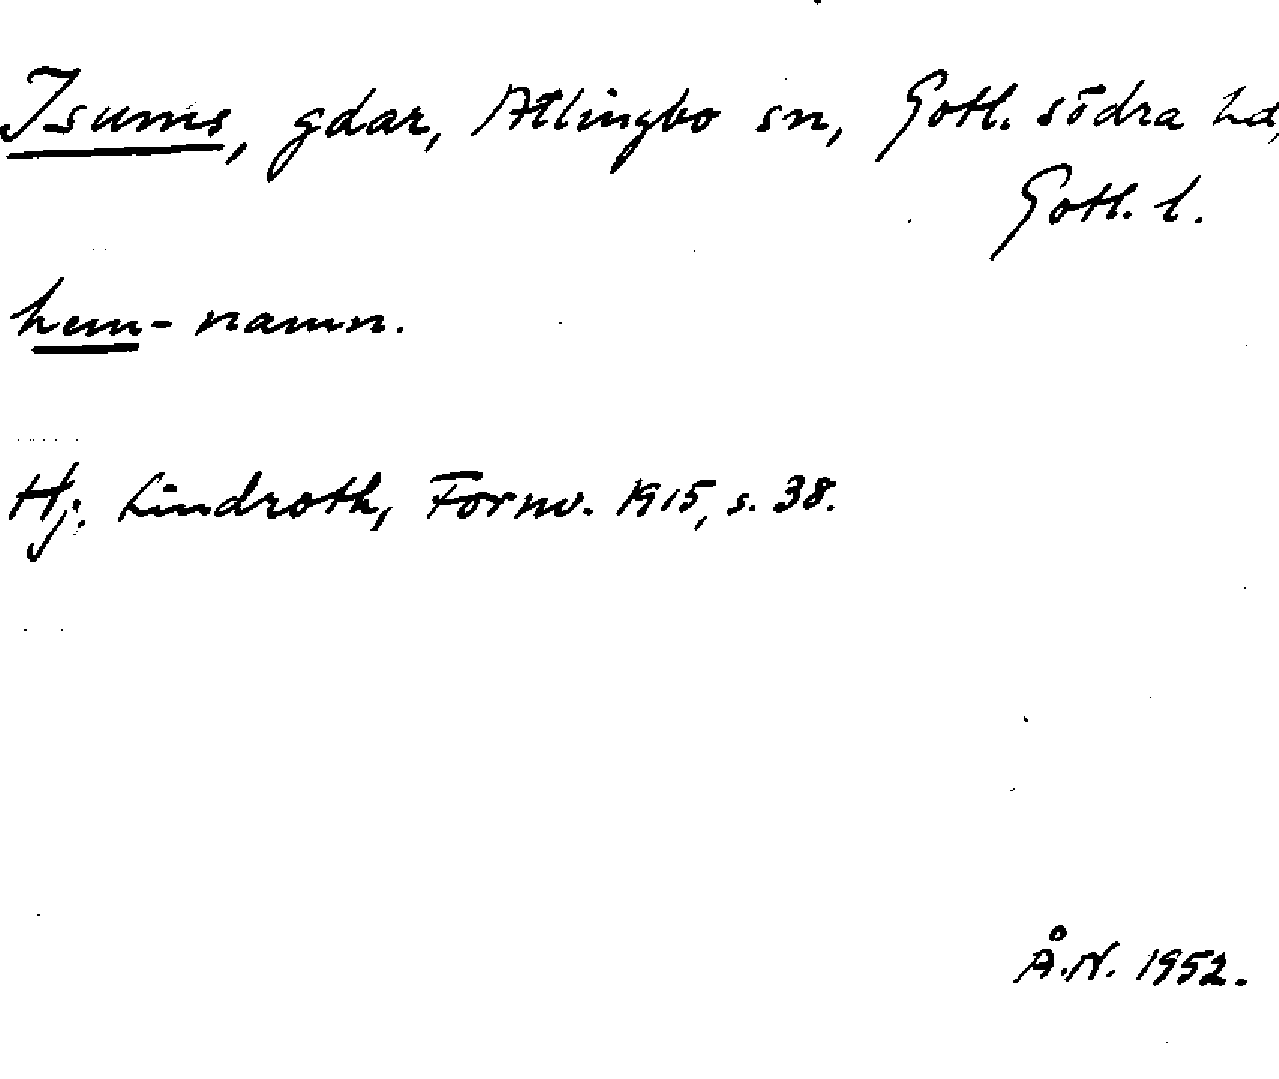 Isums, gdar, Atlingbo sn, Gotl. södra hd,
Gotl. l.
hem- namn.
Hj. Lindroth, Fornv. 1915, s. 38.
Å.N. 1952.